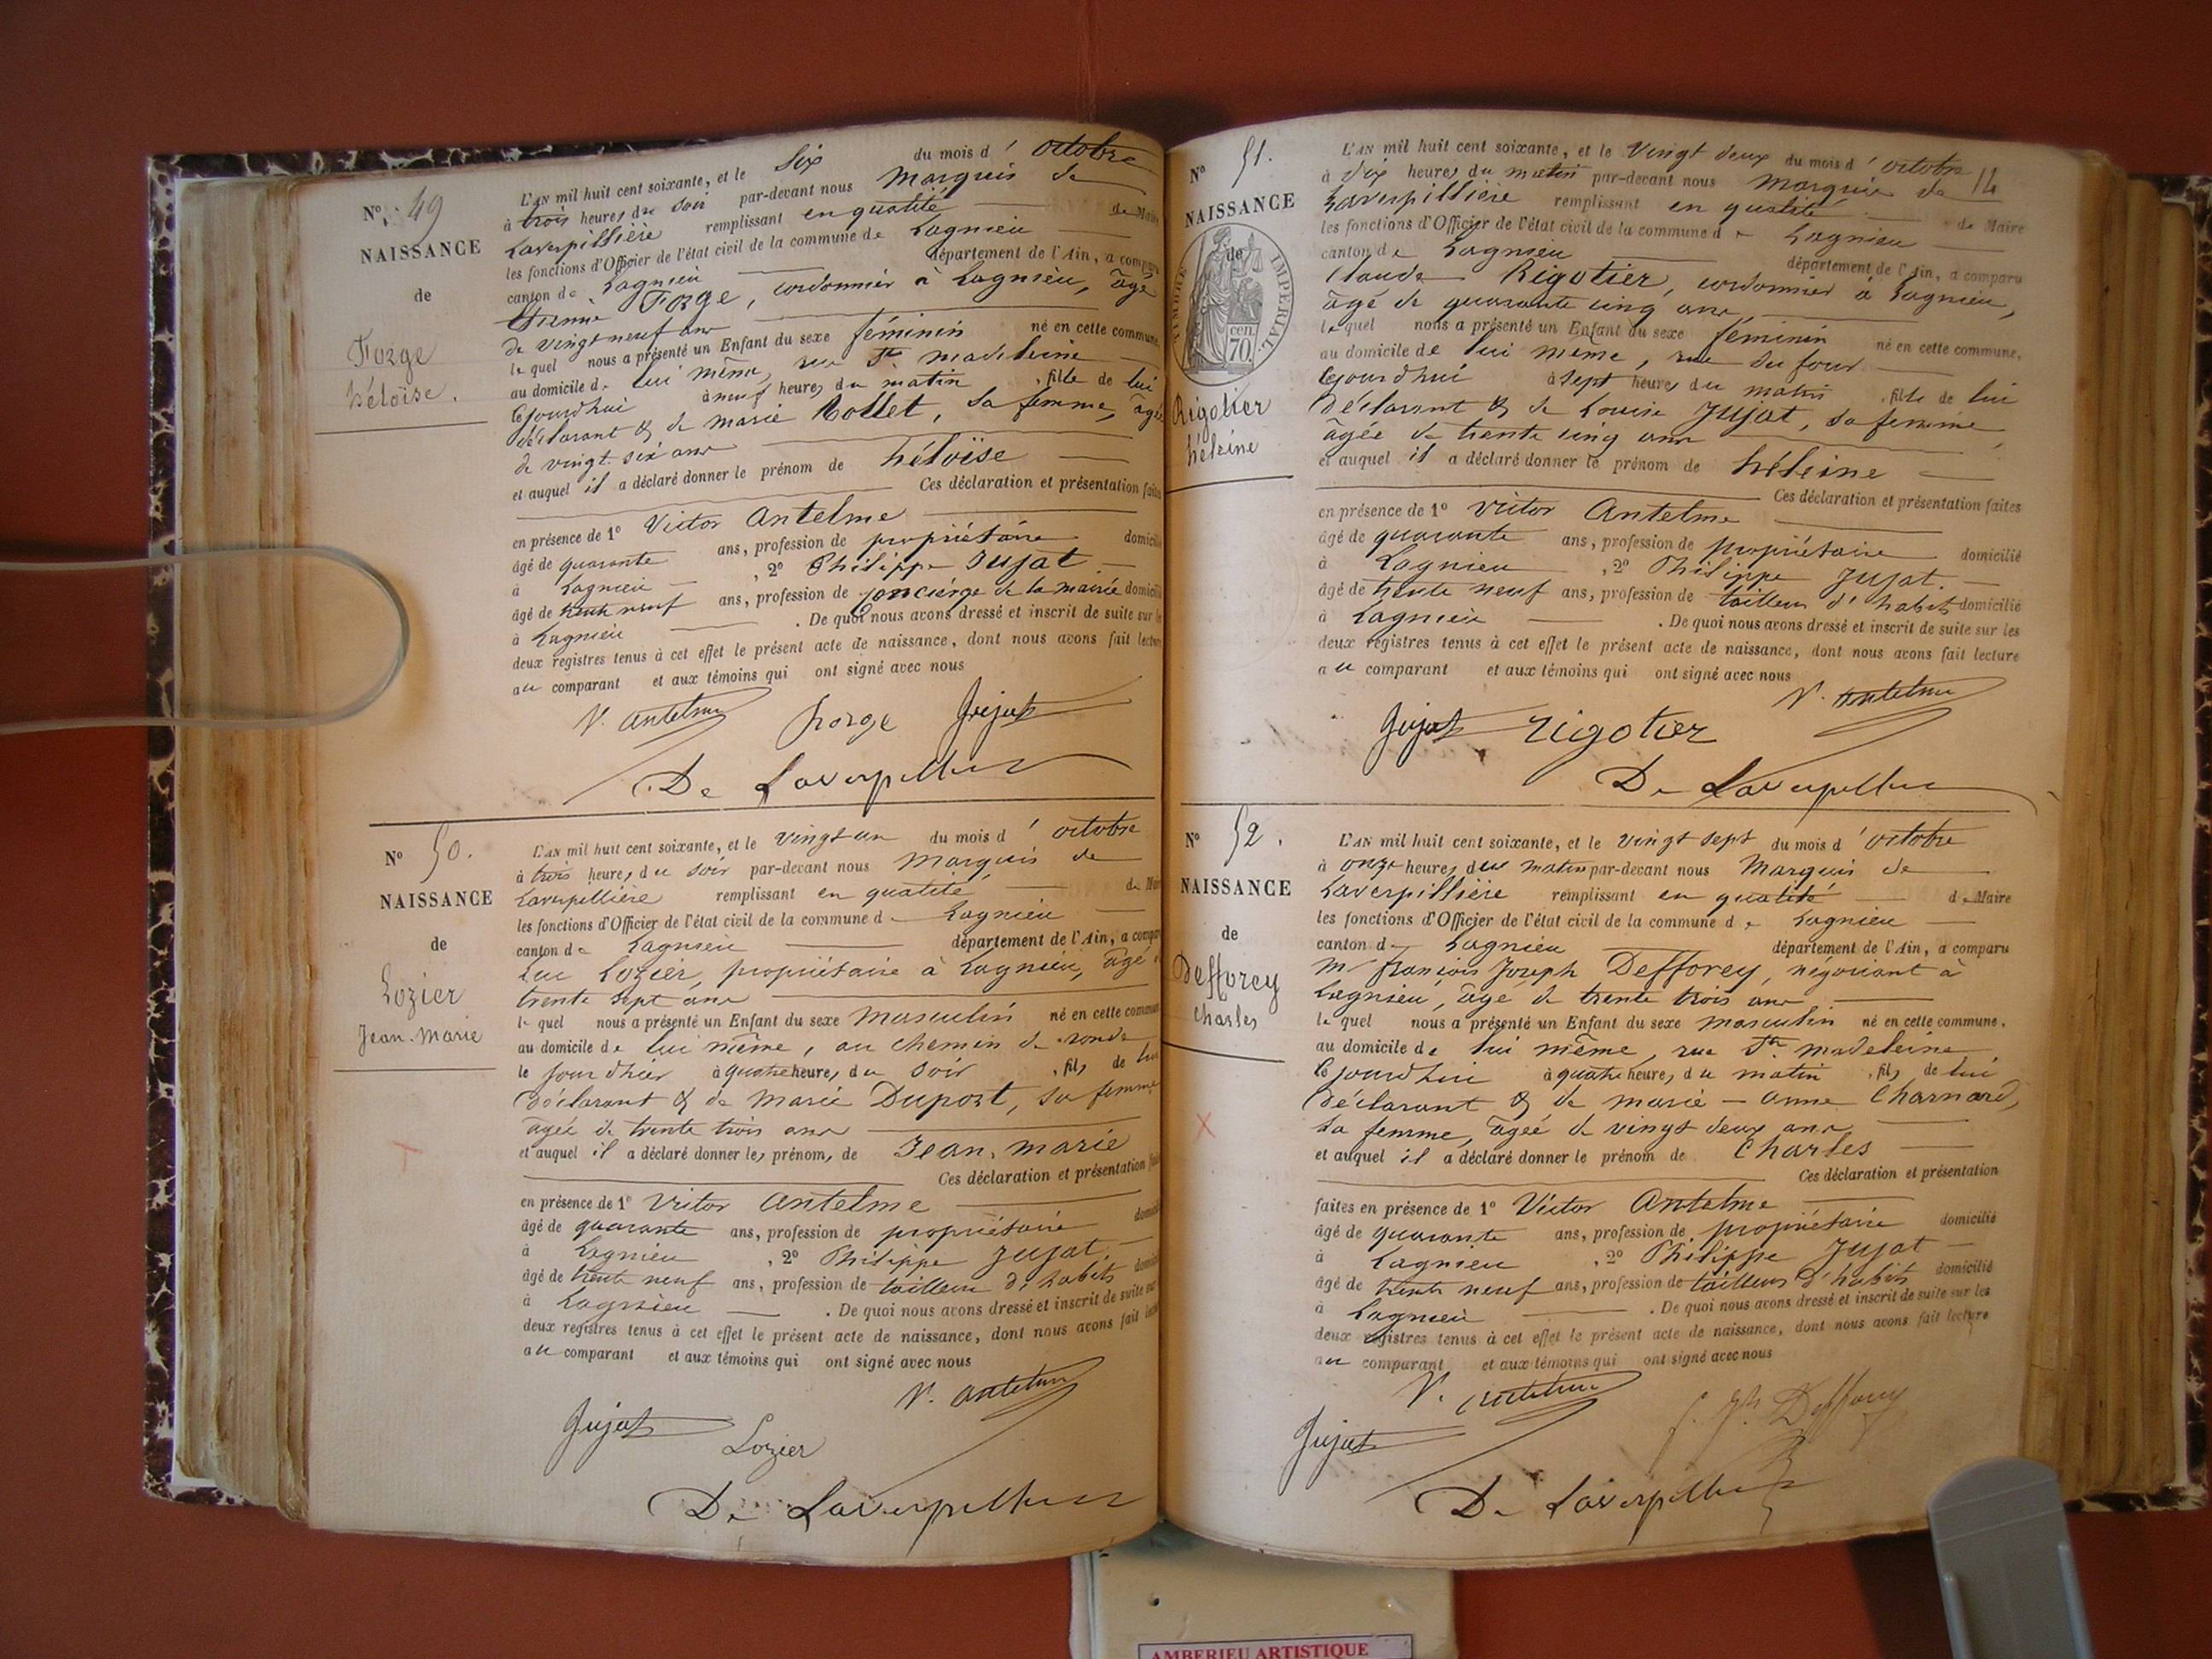 N° 49
NAISSANCE
de
Forge
héloïse.
L'AN mil huit cent soixante, et le six du mois d' octobre
à trois heures du soir par-devant nous Marquis de
Laverpillière remplissant en qualité de Maire
les fonctions d'Officier de l'état civil de la commune de Lagnieu
canton de Lagnieu département de l'Ain, a comparu
Etienne Forge, cordonnier à Lagnieu, âgé
de vingt neuf ans
lequel nous a présenté un Enfant du sexe féminin né en cette commune,
au domicile de lui même, rue Ste madeleine
cejourdhui à neuf heures du matin, fille de lui
déclarant & de marie Collet, sa femme, âgée
de vingt six ans
et auquel il a déclaré donner le prénom de héloïse
Ces déclaration et présentation faites
en présence de 1° Victor Antelme
âgé de quarante ans, profession de propriétaire domicilié
à Lagnieu, 2° Philippe Jujat
âgé de trente neuf ans, profession de concierge de la mairie domicilié
à Lagnieu. De quoi nous avons dressé et inscrit de suite sur les
deux registres tenus à cet effet le présent acte de naissance, dont nous avons fait lecture
au comparant et aux témoins qui ont signé avec nous
V. Antelme Forge Jujat
De Laverpilliere
N° 50.
NAISSANCE
de
Lozier
Jean-Marie
L'AN mil huit cent soixante, et le vingt un du mois d' octobre
à trois heures du soir par-devant nous Marquis de
Laverpillière remplissant en qualité de Maire
les fonctions d'Officier de l'état civil de la commune de Lagnieu
canton de Lagnieu département de l'Ain, a comparu
Luc Lozier, propriétaire à Lagnieu, âgé de
trente sept ans
lequel nous a présenté un Enfant du sexe masculin né en cette commune
au domicile de lui même, au chemin de ronde
le jour d'hier à quatre heures du soir, fils de lui
déclarant & de Marie Duport, sa femme
âgée de trente trois ans
et auquel il a déclaré donner les prénoms de Jean, marie
Ces déclaration et présentation faites
en présence de 1° Victor Antelme
âgé de quarante ans, profession de propriétaire domicilié
à Lagnieu, 2° Philippe Jujat,
âgé de trente neuf ans, profession de tailleur d'habits domicilié
à Lagnieu. De quoi nous avons dressé et inscrit de suite sur
deux registres tenus à cet effet le présent acte de naissance, dont nous avons fait lecture
au comparant et aux témoins qui ont signé avec nous
V. Antelme
Jujat Lozier
De Laverpilliere
14
N° 51.
NAISSANCE
de
TIMBRE IMPERIAL
cen.
70.
Rigotier
héleine
L'AN mil huit cent soixante, et le vingt deux du mois d' octobre
à dix heures du matin par-devant nous Marquis de
Laverpillière remplissant en qualité de Maire
les fonctions d'Officier de l'état civil de la commune de Lagnieu
canton de Lagnieu département de l'Ain, a comparu
Claude Rigotier, cordonnier à Lagnieu,
âgé de quarante cinq ans,
lequel nous a présenté un Enfant du sexe féminin né en cette commune,
au domicile de lui même, rue du four
cejourdhui à sept heures du matin, fille de lui
déclarant & de Louise Jujat, sa femme,
âgée de trente cinq ans
et auquel il a déclaré donner le prénom de héleine
Ces déclaration et présentation faites
en présence de 1° Victor Antelme
âgé de quarante ans, profession de propriétaire domicilié
à Lagnieu, 2° Philippe Jujat.
âgé de trente neuf ans, profession de tailleur d'habits domicilié
à Lagnieu. De quoi nous avons dressé et inscrit de suite sur les
deux registres tenus à cet effet le présent acte de naissance, dont nous avons fait lecture
au comparant et aux témoins qui ont signé avec nous
V. Antelme
Jujat Rigotier
De Laverpilliere
N° 52.
NAISSANCE
de
Defforey
Charles
L'AN mil huit cent soixante, et le vingt sept du mois d' octobre
à onze heures du matin par-devant nous Marquis de
Laverpillière remplissant en qualité de Maire
les fonctions d'Officier de l'état civil de la commune de Lagnieu
canton de Lagnieu département de l'Ain, a comparu
Mr françois Joseph Defforey, négociant à
Lagnieu, âgé de trente trois ans
lequel nous a présenté un Enfant du sexe masculin né en cette commune,
au domicile de lui même, rue Ste madeleine
cejourdhui à quatre heures du matin, fils de lui
déclarant & de marie-anne Charnard,
sa femme, âgée de vingt deux ans,
et auquel il a déclaré donner le prénom de Charles
Ces déclaration et présentation
faites en présence de 1° Victor Antelme
âgé de quarante ans, profession de propriétaire domicilié
à Lagnieu, 2° Philippe Jujat
âgé de trente neuf ans, profession de tailleur d'habits domicilié
à Lagnieu. De quoi nous avons dressé et inscrit de suite sur les
deux registres tenus à cet effet le présent acte de naissance, dont nous avons fait lecture
au comparant et aux témoins qui ont signé avec nous
V. Antelme
Jujat f. Jh Defforey
De Laverpilliere
AMBERIEU ARTISTIQUE